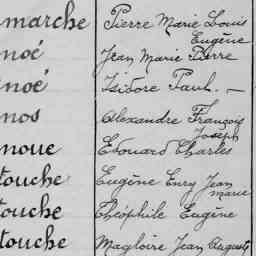 marche Pierre Marie Louis
Eugène
noé Jean Marie Pierre
noé Isidore Paul. —
nos Alexandre François
Joseph
noue Edouard Charles
touche Eugène Enry Jean
marie
touche Théophile Eugène
touche Magloire Jean Auguste